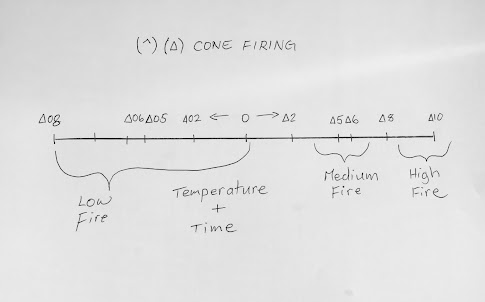 (^) (Δ) CONE FIRING
Δ08 Δ06 Δ05 Δ02 ← 0 → Δ2 Δ5 Δ6 Δ8 Δ10
Low
Fire
Temperature
+
Time
Medium
Fire
High
Fire